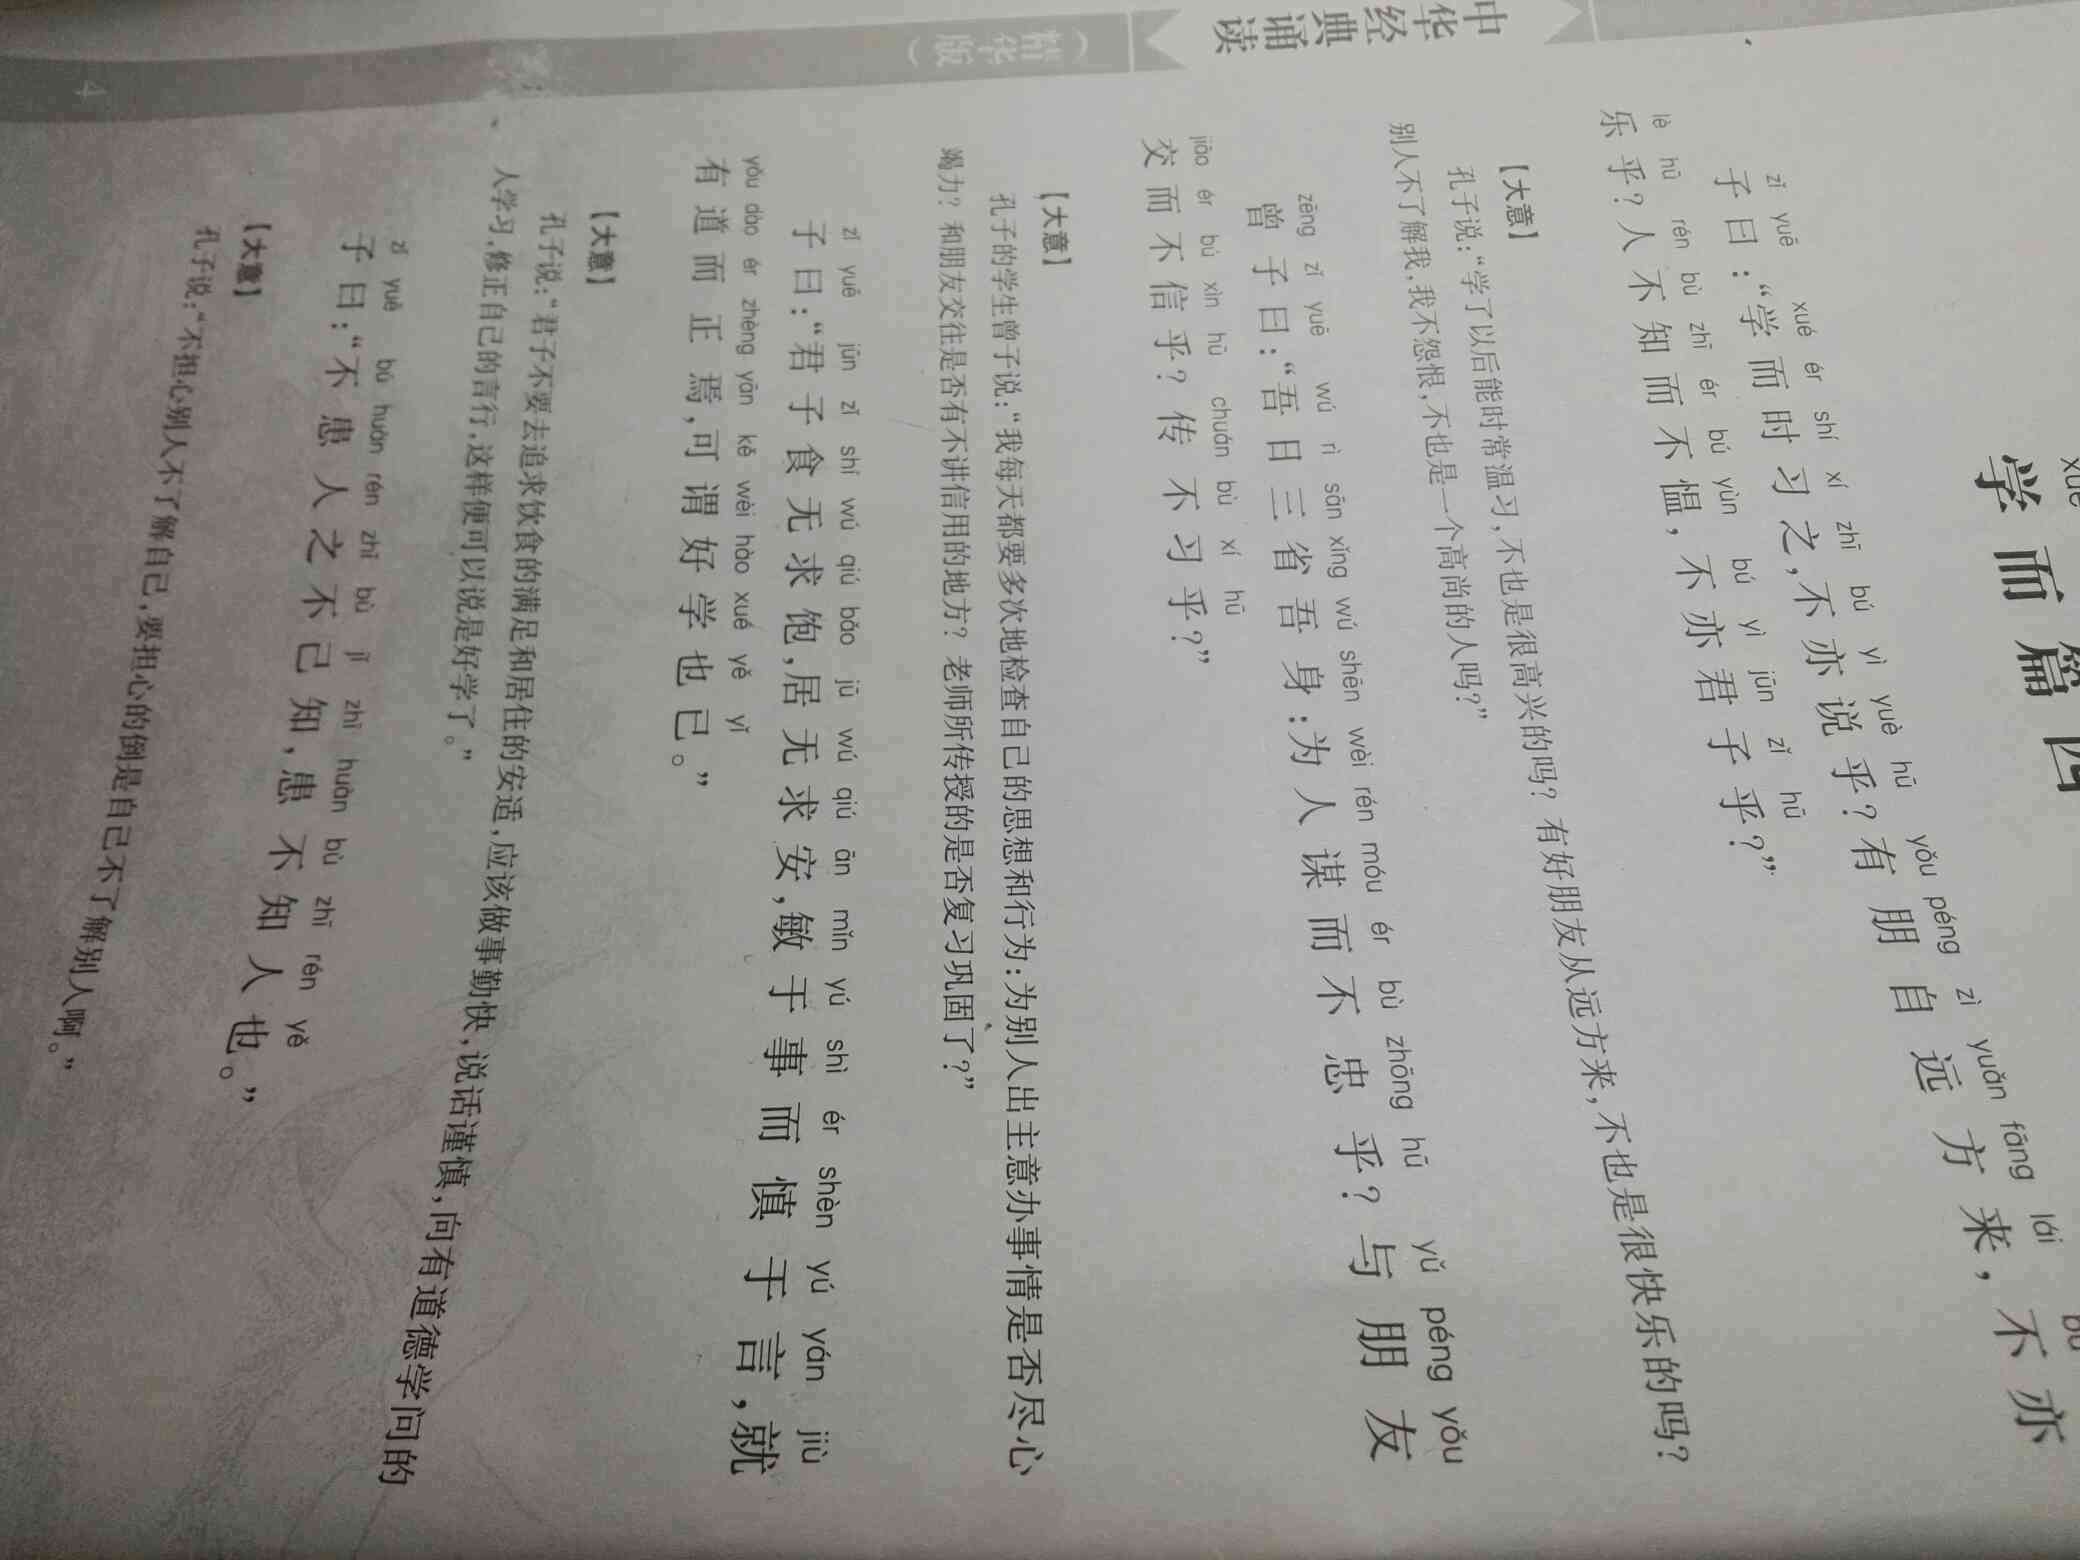 中华经典诵读
（精华版）
4
xué
学而篇四
zǐ yuē xué ér shí xí zhī bú yì yuè hū yǒu péng zì yuǎn fāng lái bú
子曰：“学而时习之，不亦说乎？有朋自远方来，不亦
lè hū rén bù zhī ér bú yùn bú yì jūn zǐ hū
乐乎？人不知而不愠，不亦君子乎？”
【大意】
孔子说：“学了以后能时常温习，不也是很高兴的吗？有好朋友从远方来，不也是很快乐的吗？
别人不了解我，我不怨恨，不也是一个高尚的人吗？”
zēng zǐ yuē wú rì sān xǐng wú shēn wèi rén móu ér bù zhōng hū yǔ péng yǒu
曾子曰：“吾日三省吾身：为人谋而不忠乎？与朋友
jiāo ér bú xìn hū chuán bù xí hū
交而不信乎？传不习乎？”
【大意】
孔子的学生曾子说：“我每天都要多次地检查自己的思想和行为：为别人出主意办事情是否尽心
竭力？和朋友交往是否有不讲信用的地方？老师所传授的是否复习巩固了？”
zǐ yuē jūn zǐ shí wú qiú bǎo jū wú qiú ān mǐn yú shì ér shèn yú yán jiù
子曰：“君子食无求饱，居无求安，敏于事而慎于言，就
yǒu dào ér zhèng yān kě wèi hào xué yě yǐ
有道而正焉，可谓好学也已。”
【大意】
孔子说：“君子不要去追求饮食的满足和居住的安适，应该做事勤快，说话谨慎，向有道德学问的
人学习，修正自己的言行，这样便可以说是好学了。”
zǐ yuē bú huàn rén zhī bù jǐ zhī huàn bù zhī rén yě
子曰：“不患人之不己知，患不知人也。”
【大意】
孔子说：“不担心别人不了解自己，要担心的倒是自己不了解别人啊。”